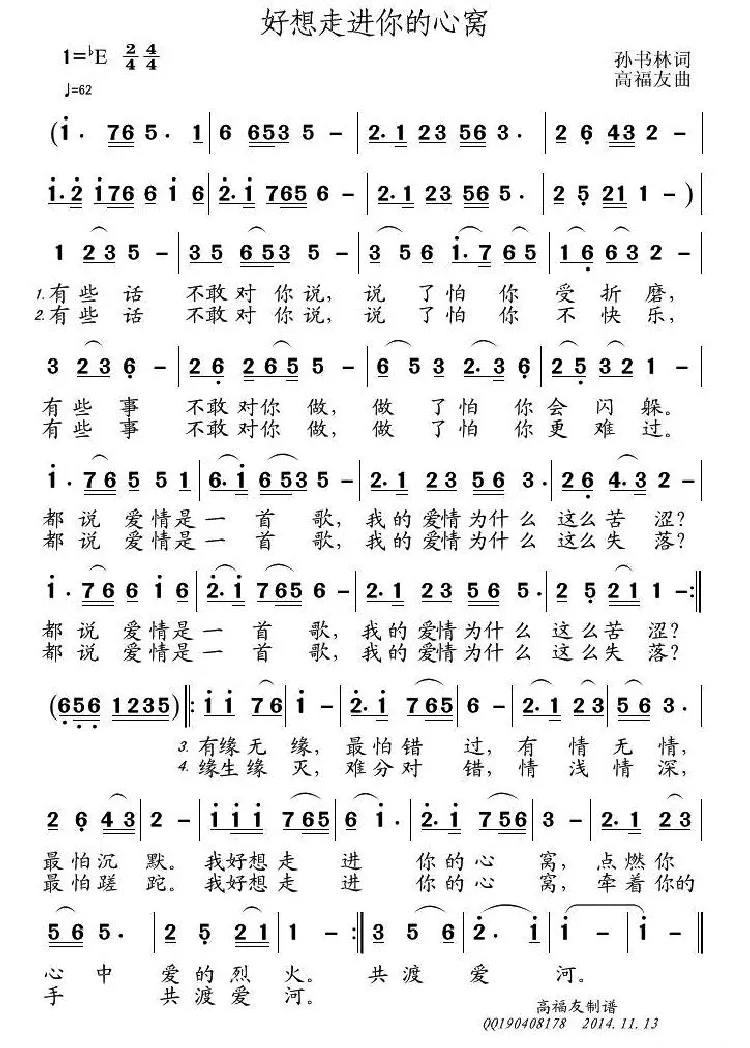 好想走进你的心窝
1=♭E 2/4 4/4
孙书林词
♩=62
高福友曲
(1· 76 5· 1 | 6 653 5 - | 2·1 23 56 3· | 2 6 43 2 - |
1·2 176 6 1 6 | 2·1 765 6 - | 2·1 23 56 5· | 2 5 21 1 - )
1 23 5 - | 35 653 5 - | 3 56 1·7 65 | 16 63 2 - |
1.有些 话 不敢对你说, 说 了怕 你 受 折 磨,
2.有些 话 不敢对你说, 说 了怕 你 不 快 乐,
3 23 6 - | 26 265 5 - | 6 53 2·3 6 | 25 32 1 - |
有些 事 不敢对你 做, 做 了怕 你会 闪 躲。
有些 事 不敢对你 做, 做 了怕 你更 难 过。
1· 76 5 5 1 | 6·1 653 5 - | 2·1 23 56 3· | 26 4·3 2 - |
都 说 爱情是一 首 歌, 我的爱情为什么 这么苦 涩?
都 说 爱情是一 首 歌, 我的爱情为什么 这么失 落?
1· 766 1 6 | 2·1 765 6 - | 2·1 23 56 5· | 2 5 21 1 -:‖
都 说 爱情是一 首 歌, 我的爱情为什么 这么苦 涩?
都 说 爱情是一 首 歌, 我的爱情为什么 这么失 落?
(656 1235)‖: 1 1 76 | 2·1 765 | 6 - | 2·1 23 | 56 3· |
3.有缘无 缘, 最怕错 过, 有 情 无 情,
4.缘生缘 灭, 难分对 错, 情 浅 情 深,
2 6 43 | 2 - | 1 1 1 765 | 6 1· | 2·1 756 | 6 - | 2·1 23 |
最怕沉 默。 我好想走 进 你的心 窝, 点燃你
最怕蹉 跎。 我好想走 进 你的心 窝, 牵着你的
56 5· | 2 5 21 | 1 - :‖ 3 56 | 2· 1 | 1 - | 1 - ‖
心 中 爱 的 烈 火。 共渡 爱 河。
手 共 渡 爱 河。
高福友制谱
QQ190408178 2014.11.13